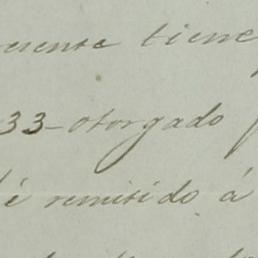 presente tiene
33 - otorgado
é remitido á